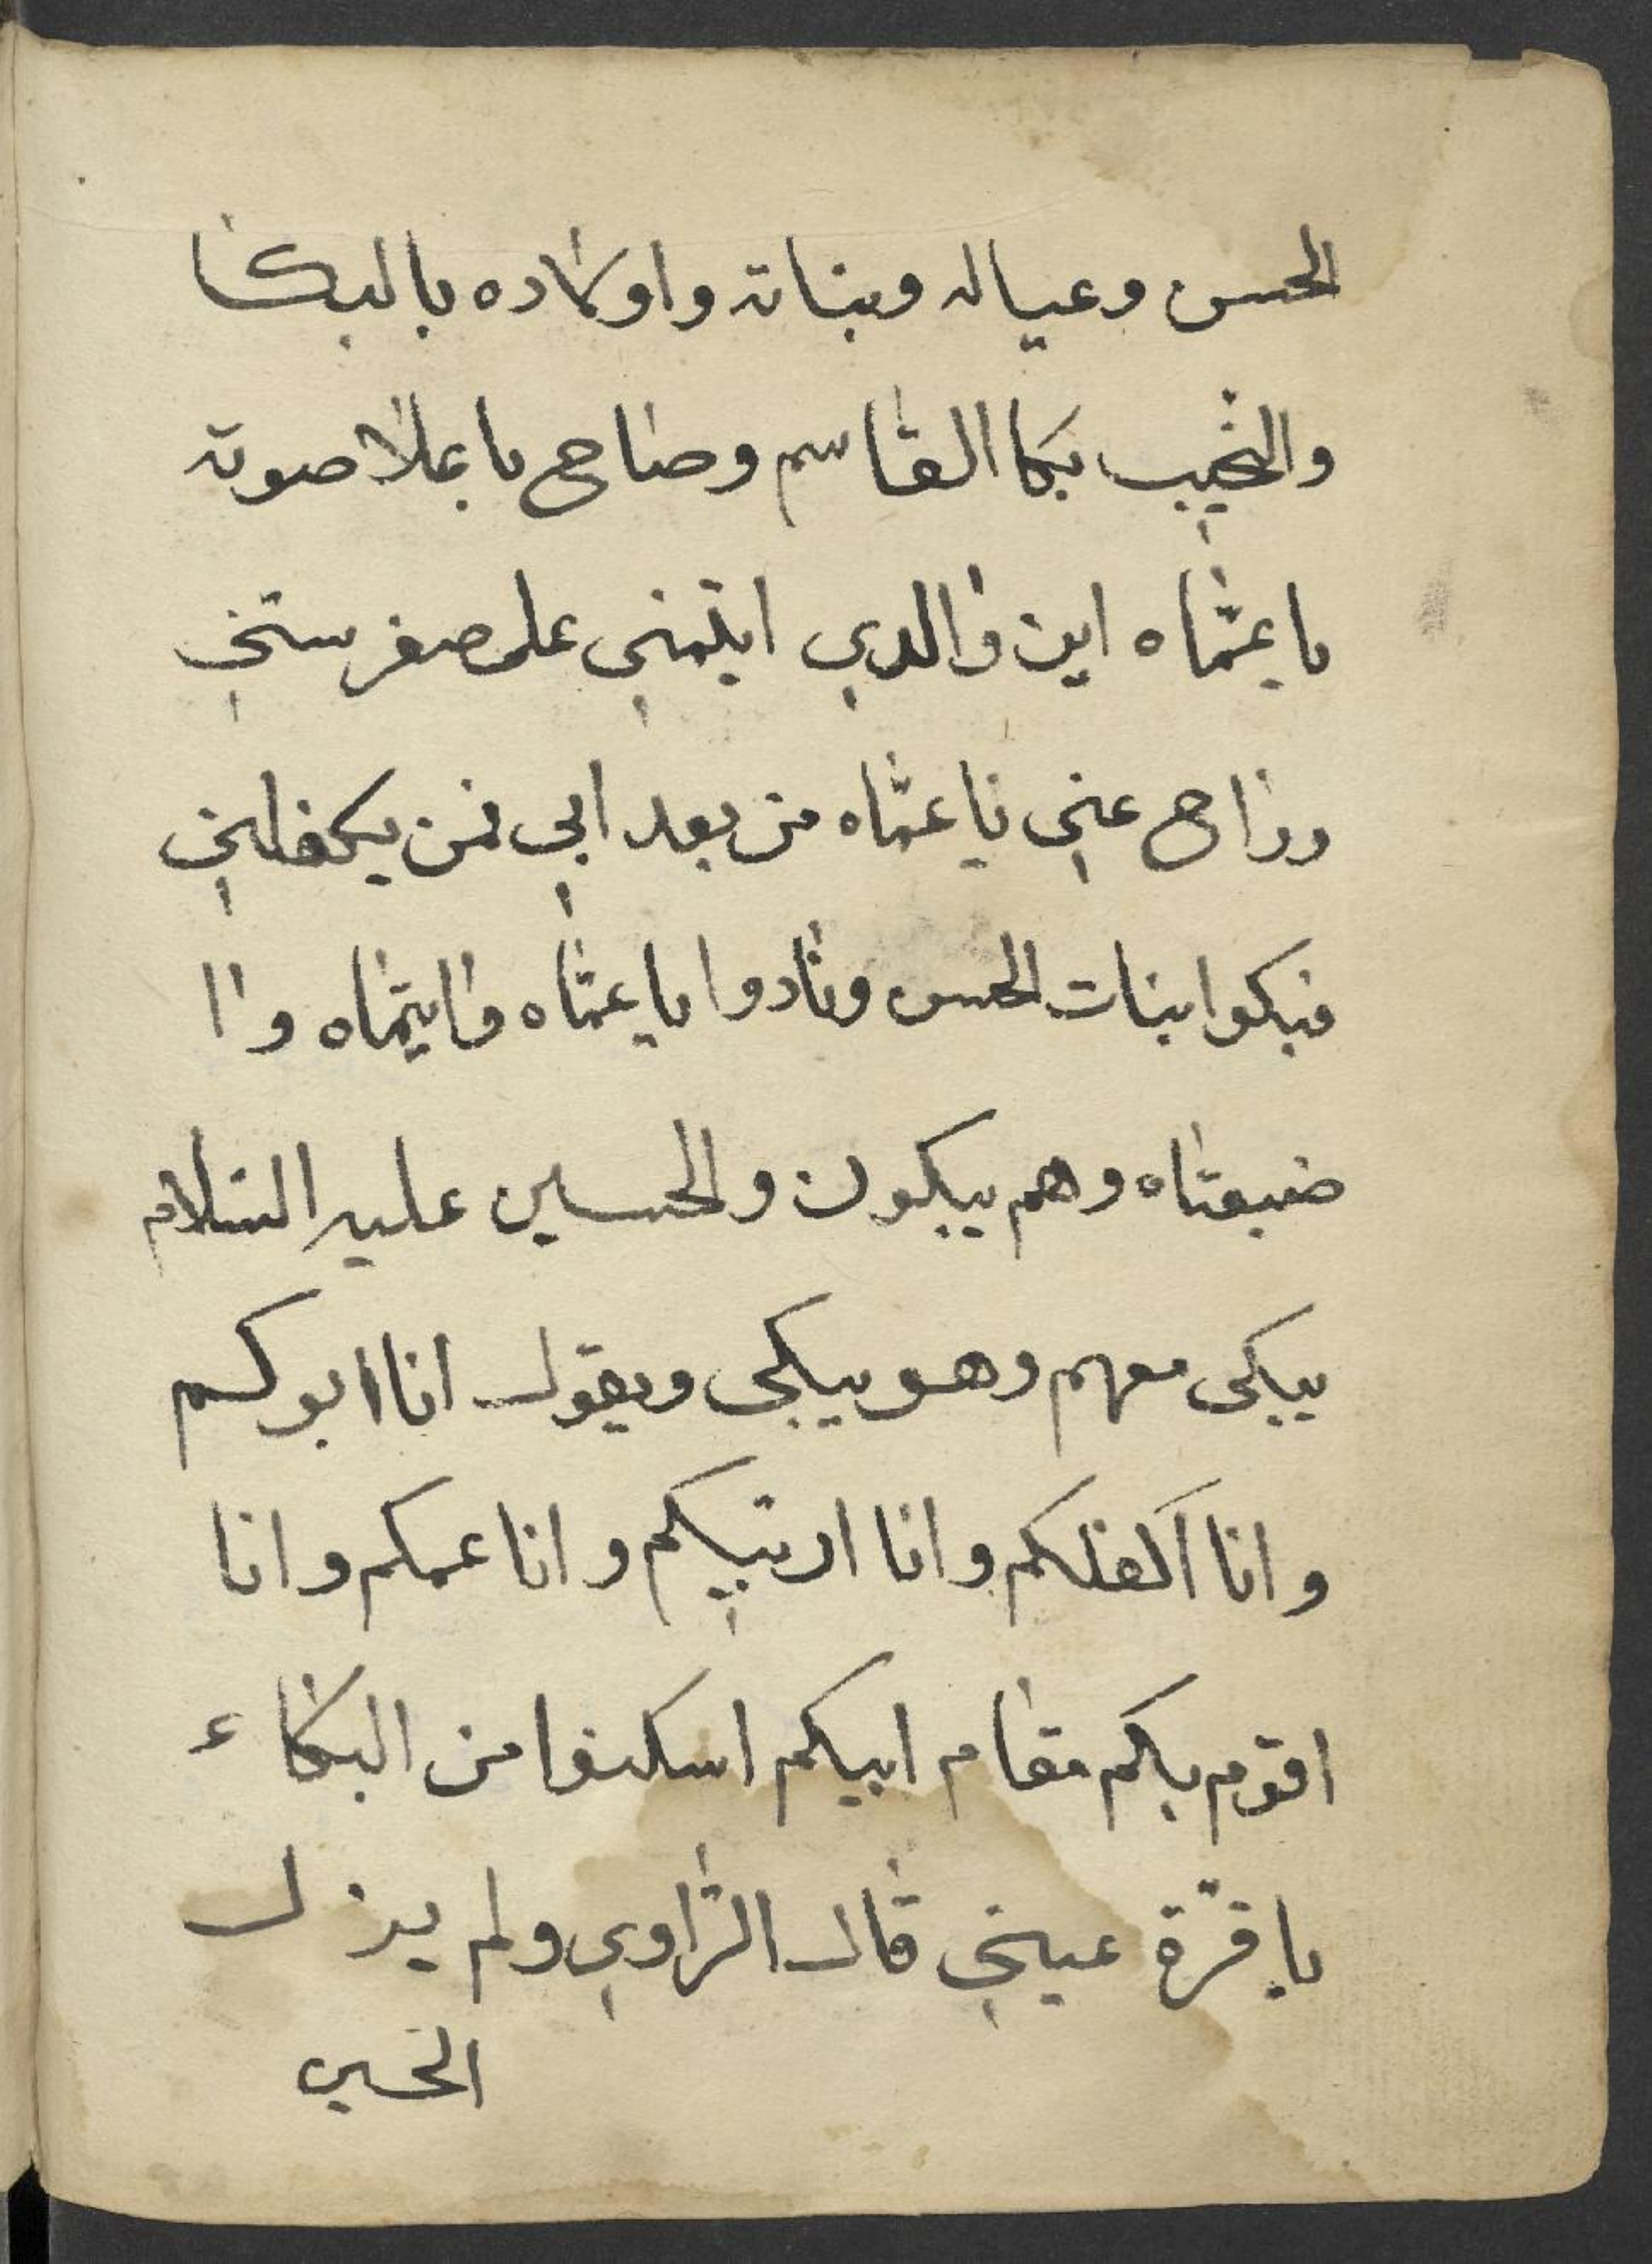 الحسن وعياله وبناته واولاده بالبكا
والنحيب بكا القاسم وصاح باعلا صوته
يا عمّاه اين والدي ايتمني على صغر سني
وراح عني يا عمّاه من بعد ابي فمن يكفلني
فبكوا بنات الحسن ونادوا يا عمّاه وايتماه وا
ضيعتاه وهم يبكون والحسين عليه السلام
يبكى معهم وهو يبكى ويقول انا ابوكم
وانا اكفلكم وانا اربيكم وانا عمكم وانا
اقوم بكم مقام ابيكم اسكنوا من البكاء
يا قرّة عيني قال الرّاوي ولم يزل
الحسين